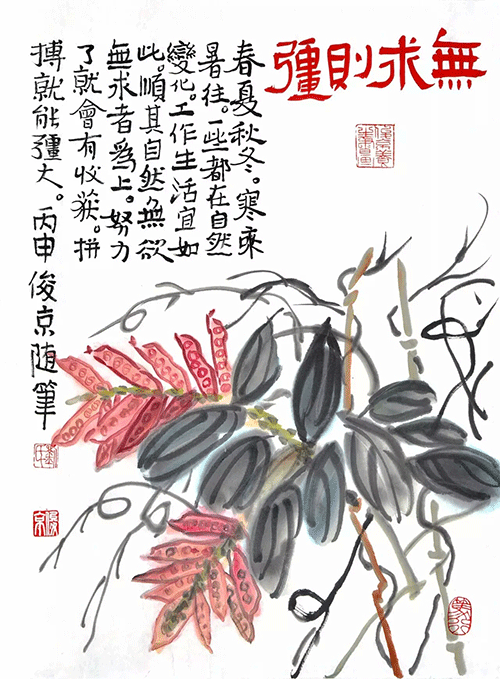 無求則彊
春夏秋冬。寒來
暑往。一些都在自然
變化。工作生活宜如
此。順其自然無欲
無求者為上。努力
了就會有收获。拼
搏就能彊大。丙申俊京随筆